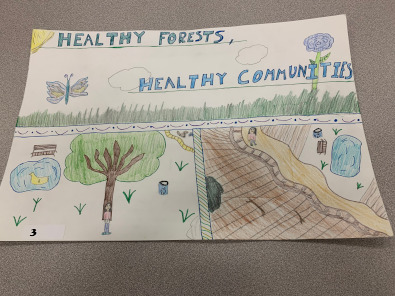 HEALTHY FORESTS,
HEALTHY COMMUNITIES
3